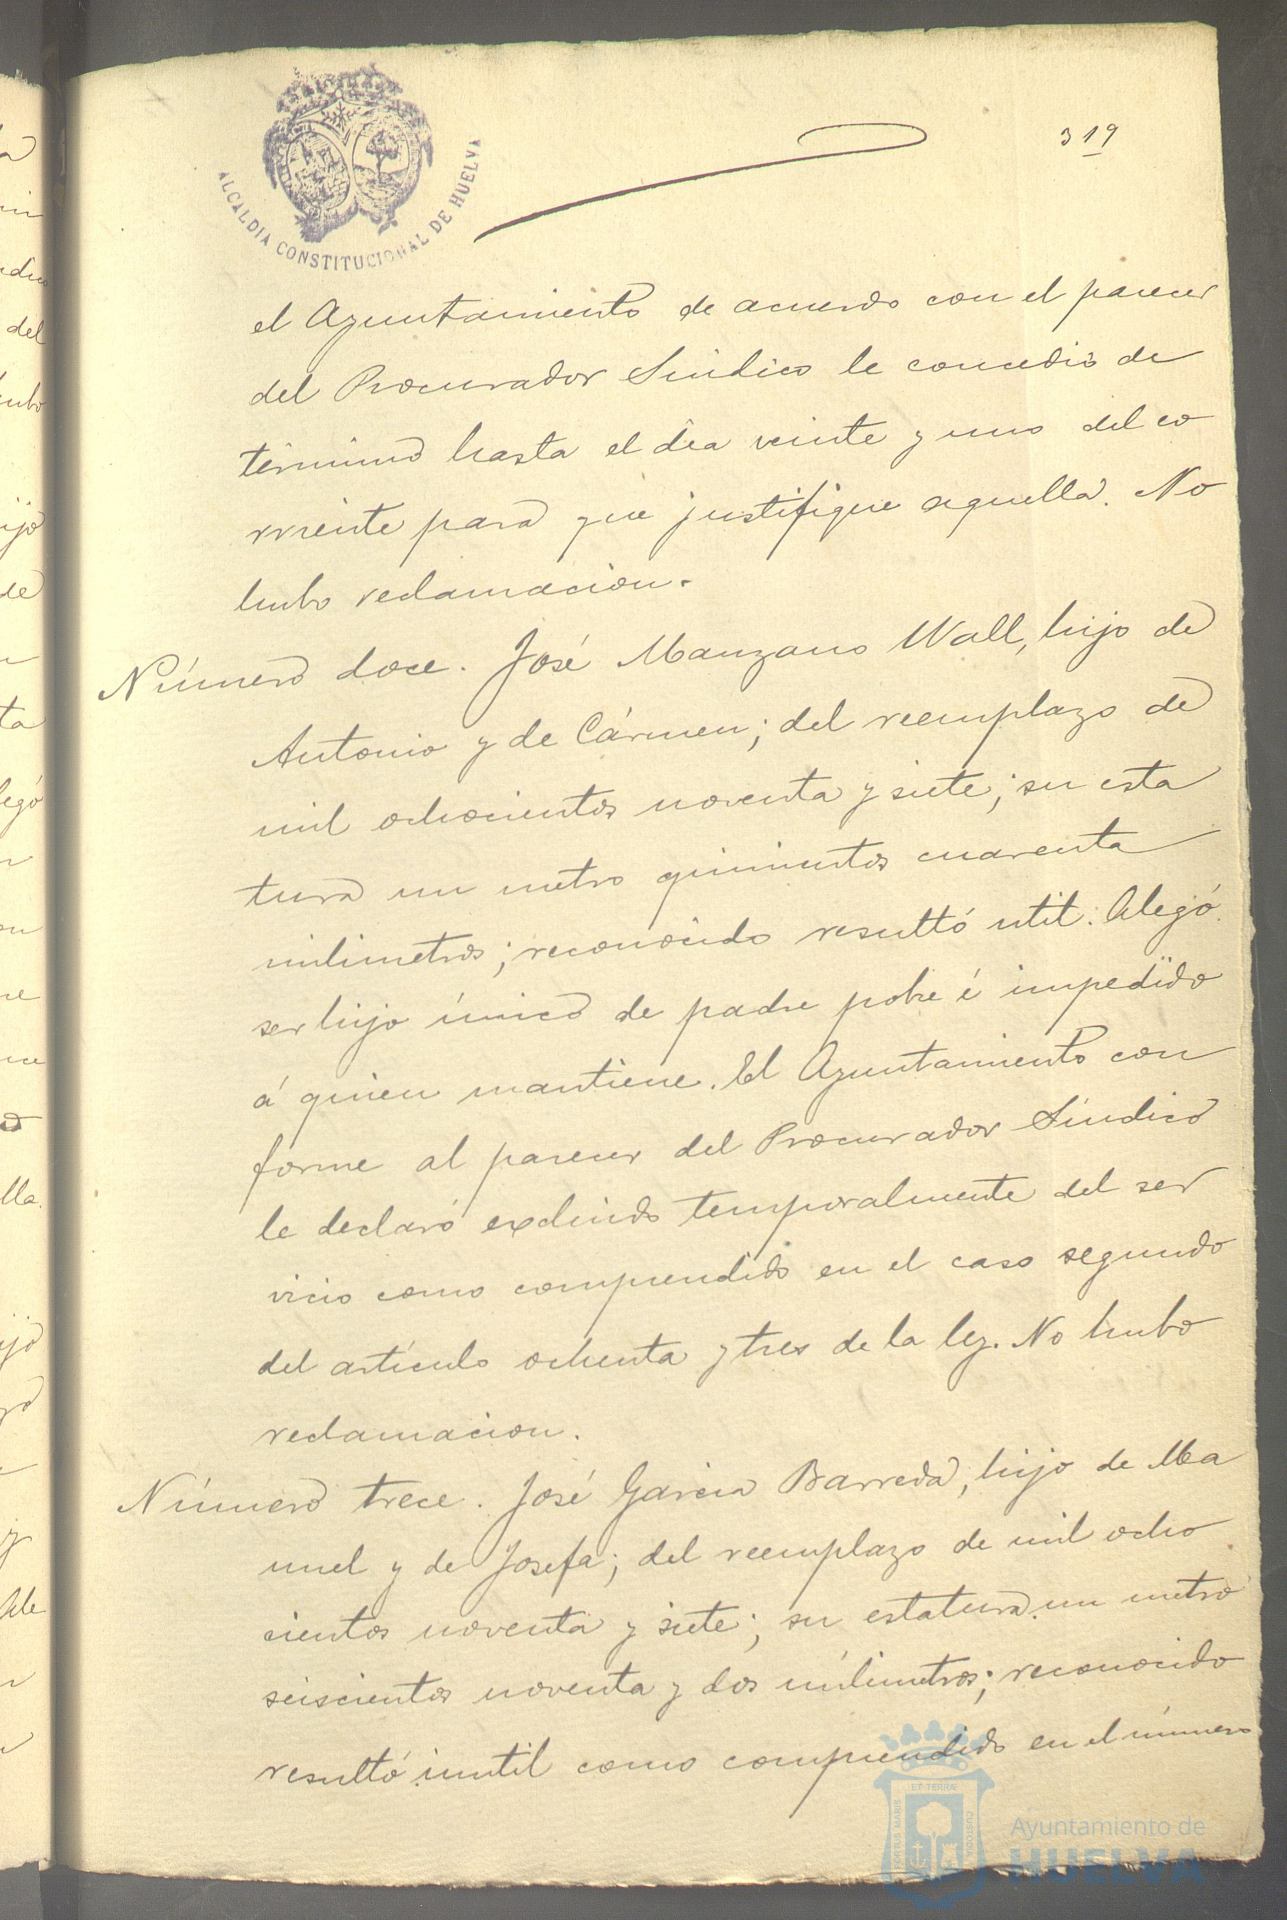 319
ALCALDIA CONSTITUCIONAL DE HUELVA
el Ayuntamiento de acuerdo con el parecer
del Procurador Sindico le concedió de
término hasta el dia veinte y uno del co
rriente para que justifique aquella. No
hubo reclamacion.
Número doce. José Manzano Wall, hijo de
Antonio y de Cármen; del reemplazo de
mil ochocientos noventa y siete; su esta
tura un metro quinientos cuarenta
milimetros; reconocido resultó util. Alegó
ser hijo único de padre pobre é impedido
á quien mantiene. El Ayuntamiento con
forme al parecer del Procurador Síndico
le declaró excluido temporalmente del ser
vicio como comprendido en el caso segundo
del artículo ochenta y tres de la ley. No hubo
reclamacion.
Número trece. José Garcia Barreda, hijo de Ma
nuel y de Josefa; del reemplazo de mil ocho
cientos noventa y siete; su estatura un metro
seiscientos noventa y dos milimetros; reconocido
resultó inutil como comprendido en el número
PORTUS MARIS ET TERRÆ CUSTODIA
Ayuntamiento de
HUELVA